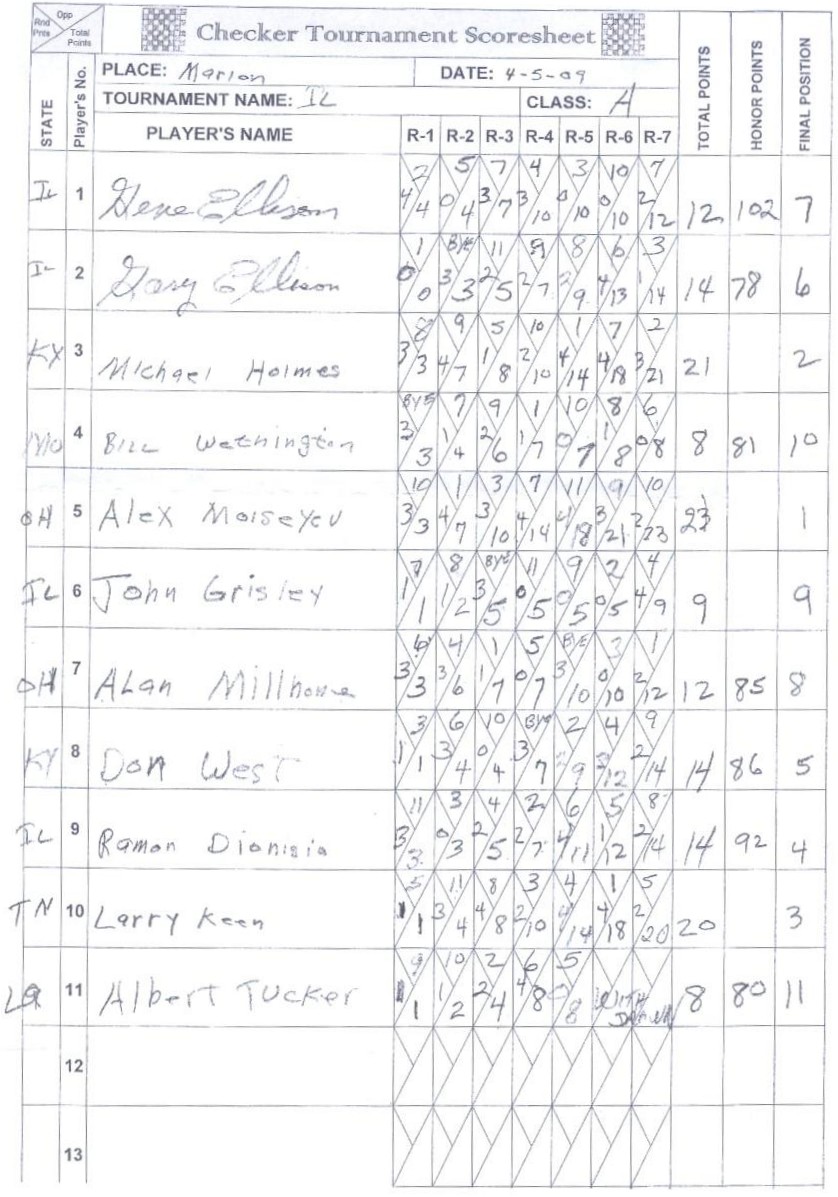 Opp
Rnd Pnts
Total Points
Checker Tournament Scoresheet
PLACE: Marion DATE: 4-5-09
TOURNAMENT NAME: IL CLASS: A
STATE Player's No. PLAYER'S NAME R-1 R-2 R-3 R-4 R-5 R-6 R-7 TOTAL POINTS HONOR POINTS FINAL POSITION
2 5 7 4 3 10 7
IL 1 Gene Ellison 4/4 0/4 3/7 3/10 0/10 0/10 2/12 12 102 7
1 BYE 11 9 8 6 3
IL 2 Gary Ellison 0/0 3/3 2/5 2/7 2/9 4/13 1/14 14 78 6
8 9 5 10 1 7 2
KY 3 Michael Holmes 3/3 4/7 1/8 2/10 4/14 4/18 3/21 21 2
BYE 7 9 1 10 8 6
MO 4 BILL Wethington 3/3 1/4 2/6 1/7 0/7 1/8 0/8 8 81 10
10 1 3 7 11 9 10
OH 5 Alex Moiseyev 3/3 4/7 3/10 4/14 4/18 3/21 2/23 23 1
7 8 BYE 11 9 2 4
IL 6 John Grisley 1/1 1/2 3/5 0/5 0/5 0/5 4/9 9 9
6 4 1 5 BYE 3 1
OH 7 ALan Millhone 3/3 3/6 1/7 0/7 3/10 0/10 2/12 12 85 8
3 6 10 Bye 2 4 9
KY 8 Don West 1/1 3/4 0/4 3/7 2/9 3/12 2/14 14 86 5
11 3 4 2 6 5 8
IL 9 Ramon Dionisio 3/3 0/3 2/5 2/7 4/11 1/12 2/14 14 92 4
5 11 8 3 4 1 5
TN 10 Larry Keen 1/1 3/4 4/8 2/10 4/14 4/18 2/20 20 3
9 10 2 6 5
LA 11 Albert Tucker 1/1 1/2 2/4 4/8 0/8 WITH DRAWN 8 80 11
12
13